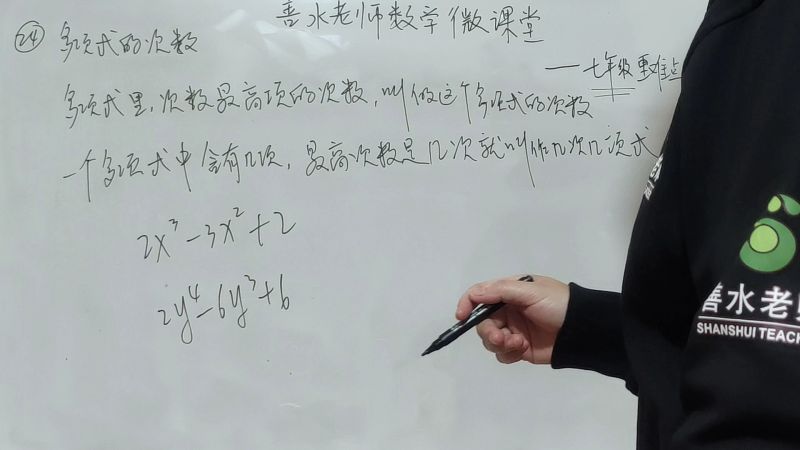 善水老师数学微课堂
㉔ 多项式的次数
——七年级重难点
多项式里,次数最高项的次数,叫做这个多项式的次数
一个多项式中含有几项,最高次数是几次就叫作几次几项式
2x³-3x²+2
2y⁴-6y³+6
善水老
SHANSHUI TEACH